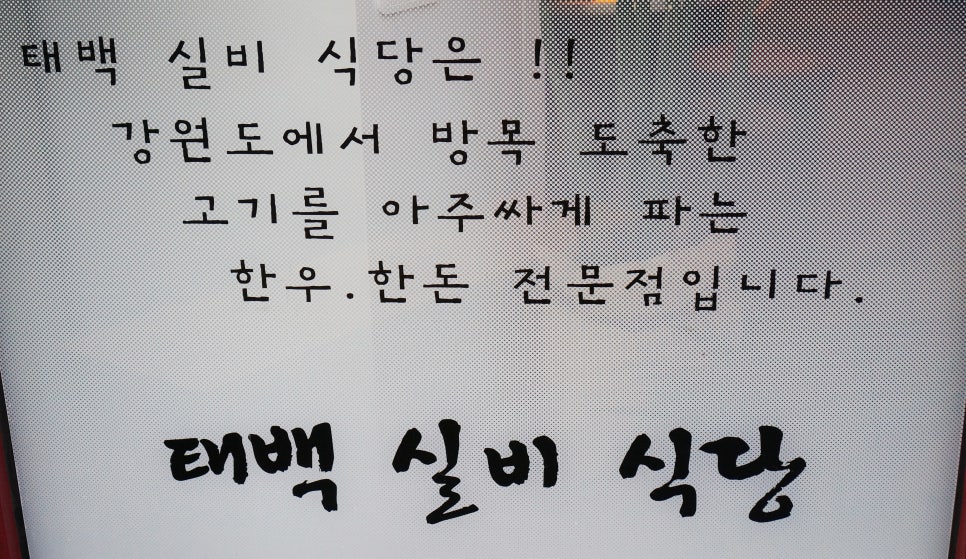 태백 실비 식당은 !!
강원도에서 방목 도축한
고기를 아주싸게 파는
한우.한돈 전문점입니다.
태백 실비 식당